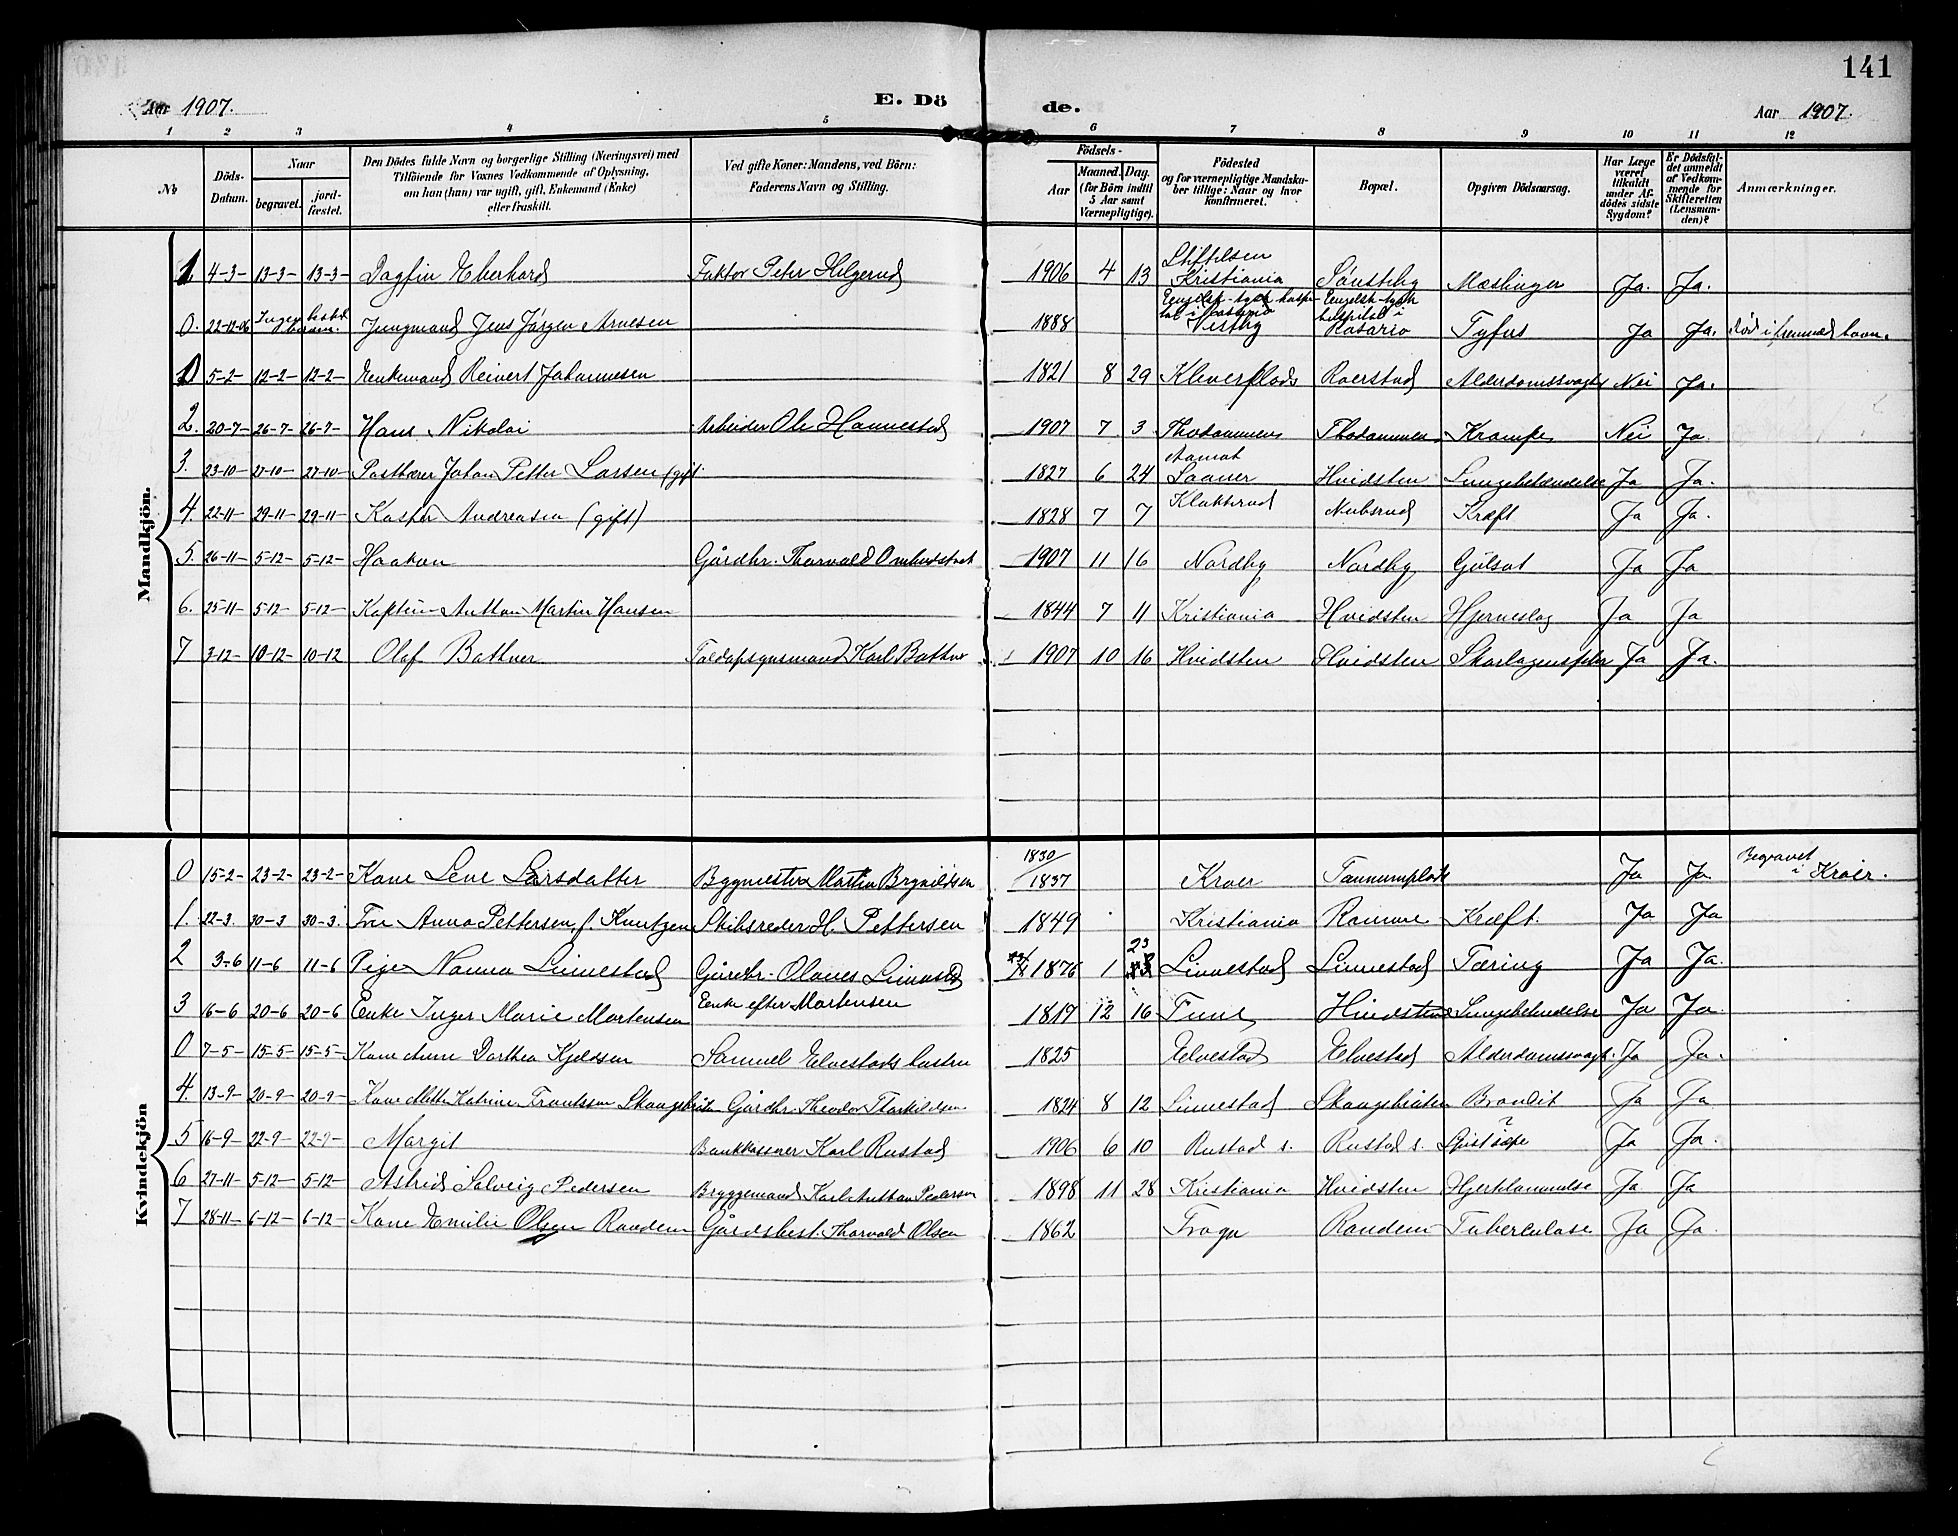 141
Aar 1907. E. Dö de. Aar 1907.
1 2 3 4 5 6 7 8 9 10 11 12
No Döds-Datum. Naar begravet. jordfæstet. Den Dödes fulde Navn og borgerlige Stilling (Næringsvei) med Tilföiende for Voxnes Vedkommende af Oplysning, om han (hun) var ugift, gift, Enkemand (Enke) eller fraskilt. Ved gifte Koner: Mandens, ved Börn: Faderens Navn og Stilling. Födsels- Aar Maaned. Dag. (for Börn indtil 5 Aar samt Værnepligtige). Födested og for værnepligtige Mandskaber tillige: Naar og hvor konfirmeret. Bopæl. Opgiven Dödsaarsag. Har Læge været tilkaldt under Afdödes sidste Sygdom? Er Dödsfaldet anmeldt af Vedkommende for Skifteretten (Lensmanden)? Anmærkninger.
Mandkjön.
1 4-3- 13-3- 13-3- Dagfin Eberhard Faktor Peter Helgerud 1906 4 13 Stiftelsen Kristiania Sønsteby Mæslinger Ja. Ja.
0. 22-12-06 Ingen Jungmand Jens Jørgen Arnesen 1888 Vestby Engelsk-tysk hospital i Rosario Tyfus Ja Ja. Død i fremmed havn.
0 5-2- 12-2- 12-2- Enkemand Reinert Johannesen 1821 8 29 Kleverplads Roerstad Alderdomssvagh. Nei Ja.
2. 20-7- 26-7- 26-7- Hans Nikolai Arbeider Ole Hannestad 1907 7 3 Thodammen Thodammen Krampe Nei Ja.
3. 23-10 27-10- 27-10- Postbærer Johan Petter Larsen (gift. 1827 6 24 Saaner Hvidsten Lungebetændelse Ja Ja.
4. 22-11- 29-11- 29-11- Kasper Andreasen (gift) 1828 7 7 Klokkerud Nubsrud Kræft Ja Ja.
5. 26-11- 5-12- 5-12- Haakon Gårdbr. Thorvald 1907 11 16 Nordby Nordby Gulsot Ja Ja
6. 25-11- 5-12- 5-12- Kaptein Anthon Martin Hansen 1844 7 11 Kristiania Hvidsten Hjerneslag Ja Ja
7 3-12- 10-12- 10-12 Olaf Bathner Toldopsynsmand Karl Bathner 1907 10 16 Hvidsten Hvidsten Skarlagensfeber Ja Ja.
Kvindekjön
0 15-2- 23-2- 23-2- Kone Lene Larsdatter Bygmester Martin Brynildsen 1830/1837 Kroer Tannumplads Ja Ja Begravet i Kroer.
1. 22-3. 30-3 30-3. Fru Anna Pettersen f. Knutzen Skibsreder H. Pettersen 1849 Kristiania Ramme Kræft. Ja Ja
2 3-6 11-6 11-6 Pige Nanna Linnestad Gårdbr. Olaves Linnestad 1876 1 23 Linnestad Linnestad Tæring Ja Ja.
3 16-6 20-6 20-6 Enke Inger Marie Mortensen Enke efter Mortensen 1817 12 16 Hvidsten Lungebetændelse Ja Ja.
0 7-5- 15-5 15-5- Kone Anne Dorthea Kjeldsen Samuel Elvestads hustru 1825 Elvestad Elvestad Alderdomssvagh. Ja Ja.
4. 13-9- 20-9- 20-9- Kone Mette Katrine Frantssen Skaugbråten Gårdbr. Theodor Torkildsen 1824 8 12 Linnestad Skaugbråten Brandit Ja Ja
5 16-9 22-9 22-9- Margit Bankkasserer Karl Rustad 1906 6 10 Rustad s. Rustad s. ? Ja Ja.
6 27-11- 5-12- 5-12- Astrid Solveig Pedersen Bryggemand Karl Anthon Pedersen 1898 11 28 Kristiania Hvidsten Hjertelammelse Ja Ja
7 28-11- 6-12- 6-12- Kone Emilie Olsen Randem Gårdsbest. Thorvald Olsen 1862 Frogn Randem Tuberculose Ja Ja.